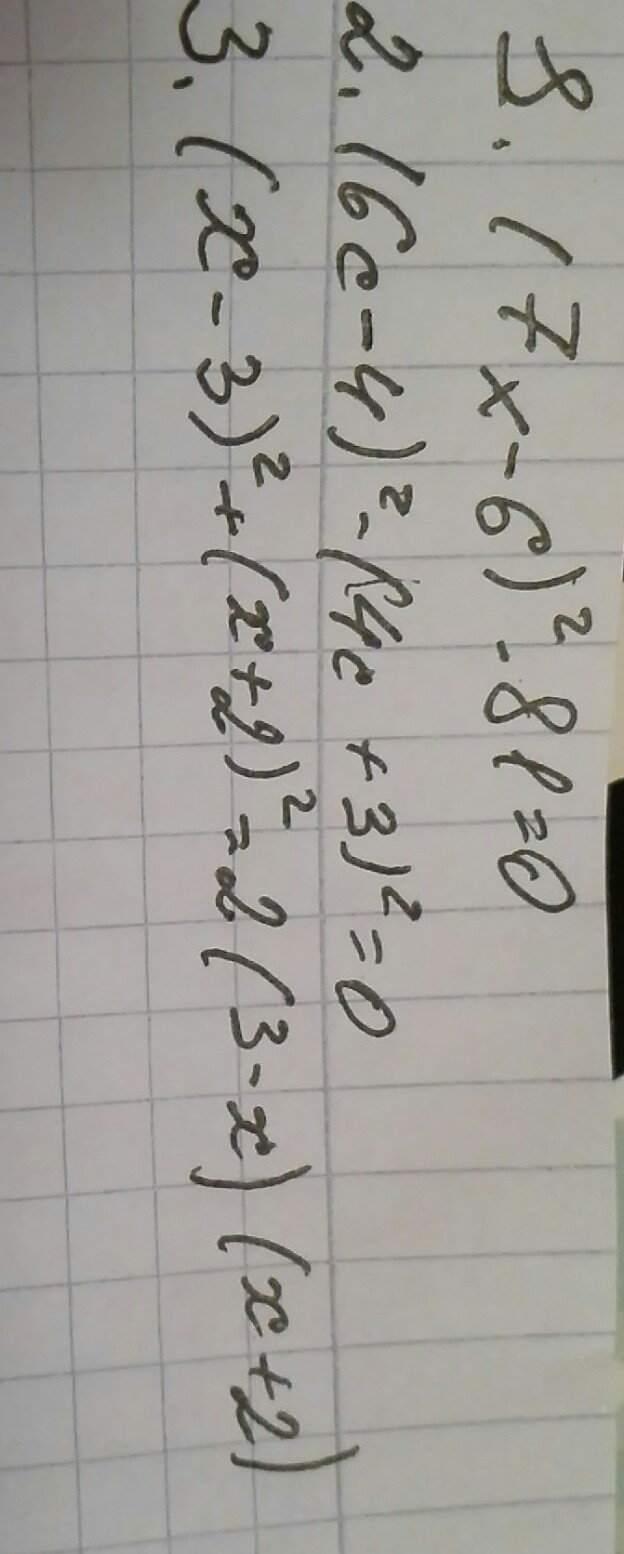 1. (7x-6)²-81=0
2. (6c-4)²-(4c+3)²=0
3. (x-3)²+(x+2)²=2(3-x)(x+2)